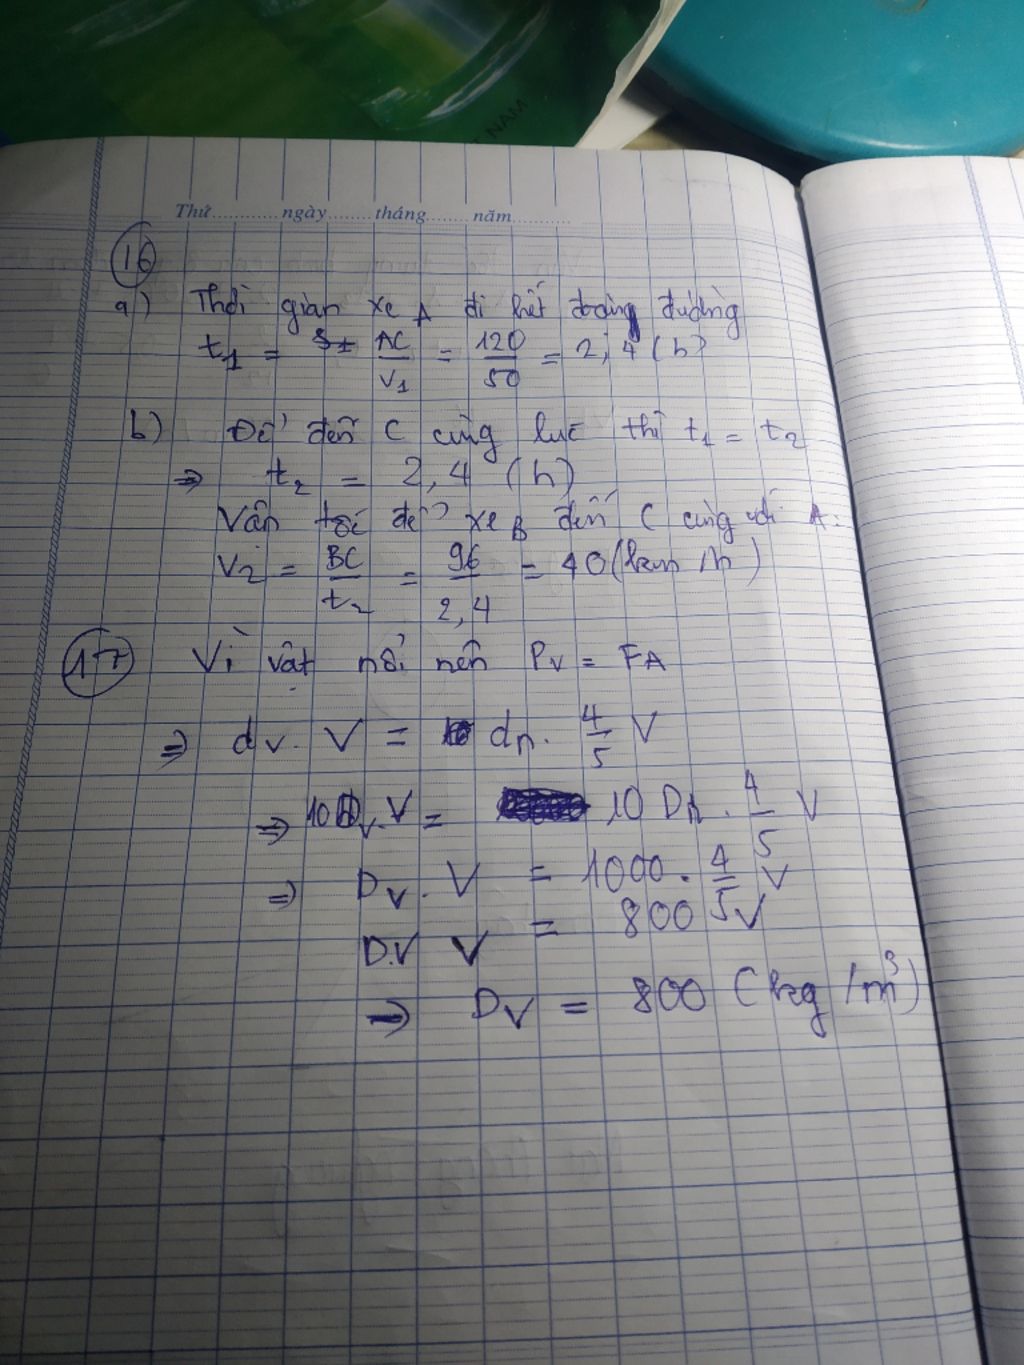 NAM
Thứ............ngày........tháng........năm............
16
a) Thời gian xe A đi hết đoạng đường
t1 = AC/v1 = 120/50 = 2,4 (h)
b) Để đến C cùng lúc thì t1 = t2
⇒ t2 = 2,4 (h)
Vận tốc để xe B đến C cùng với A:
V2 = BC/t2 = 96/2,4 = 40 (km/h)
17 Vì vật nổi nên PV = FA
⇒ dv. V = dn. 4/5 V
⇒ 10Dv.V = 10 Dn. 4/5 V
⇒ DV. V = 1000. 4/5 V
DV V = 800 V
⇒ DV = 800 (kg/m³)